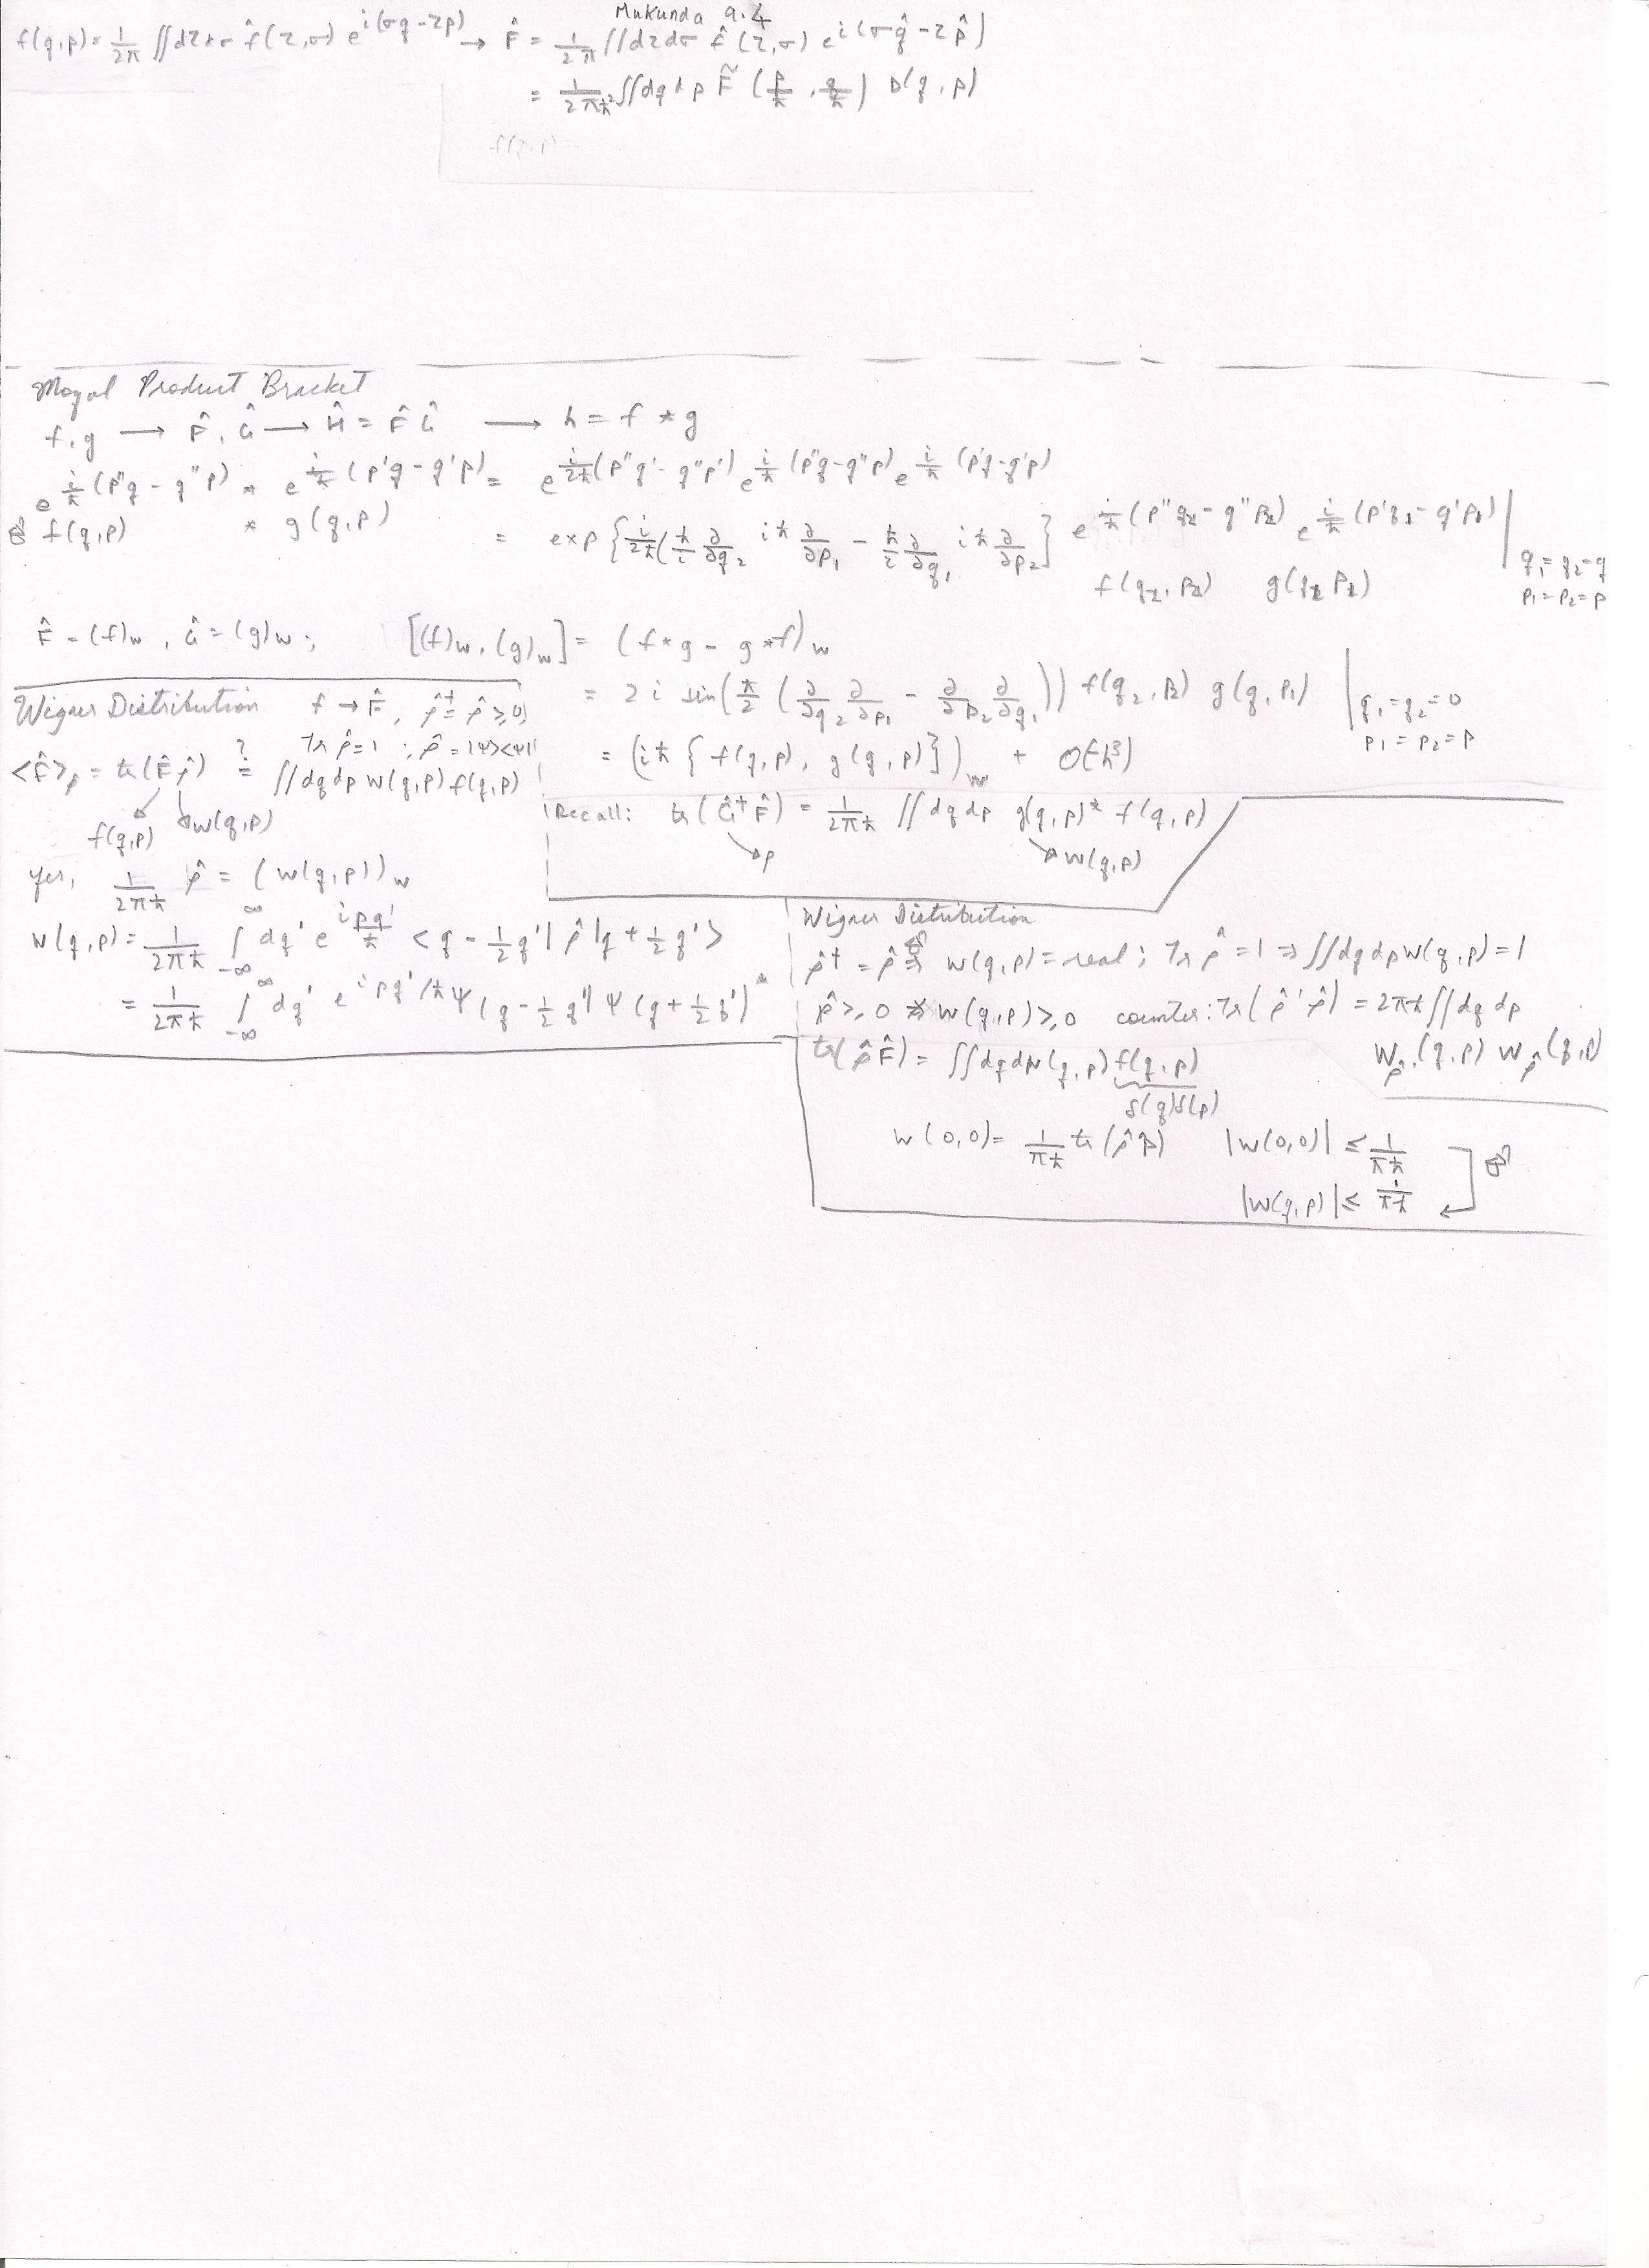 Mukunda 9.4
f(q,p) = 1/2π ∬dτdσ f̂(τ,σ) e^{i(σq-τp)} → F̂ = 1/2π ∬dτdσ f̂(τ,σ) e^{i(σq̂-τp̂)}
= 1/2πħ² ∬dqdp F̃(p/ħ, q/ħ) D(q,p)
f(q,p) =
Moyal Product Bracket
f,g → F̂, Ĝ → Ĥ = F̂Ĝ → h = f * g
e^{i/ħ(p"q - q"p)} * e^{i/ħ(p'q - q'p)} = e^{i/2ħ(p"q' - q"p')} e^{i/ħ(p"q - q"p)} e^{i/ħ(p'q - q'p)}
f(q,p) * g(q,p) = exp{i/2ħ(ħ/i ∂/∂q₂ iħ ∂/∂p₁ - ħ/i ∂/∂q₁ iħ ∂/∂p₂} e^{i/ħ(p"q₂ - q"p₂)} e^{i/ħ(p'q₁ - q'p₁)} | q₁=q₂=q
f(q₂,p₂) g(q₁p₁) p₁=p₂=p
F̂ = (f)w, Ĝ = (g)w; [(f)w, (g)w] = (f*g - g*f)w
= 2i sin(ħ/2 (∂/∂q₂ ∂/∂p₁ - ∂/∂p₂ ∂/∂q₁)) f(q₂,p₂) g(q,p₁) | q₁=q₂=0
p₁=p₂=p
= (iħ{f(q,p), g(q,p)})w + O(ħ³)
Wigner Distribution f → F̂, ρ̂† = ρ̂ ≥ 0,
Tr ρ̂ = 1; ρ̂ = |ψ><ψ|
<F̂>ρ = tr(F̂ρ̂) ?= ∬dqdp W(q,p) f(q,p)
f(q,p) W(q,p)
Recall: tr(Ĝ†F̂) = 1/2πħ ∬dqdp g(q,p)* f(q,p)
ρ W(q,p)
yes, 1/2πħ ρ̂ = (W(q,p))w
W(q,p) = 1/2πħ ∫_{-∞}^{∞} dq' e^{ipq'/ħ} <q - ½q'|ρ̂|q + ½q'>
= 1/2πħ ∫_{-∞}^{∞} dq' e^{ipq'/ħ} ψ(q - ½q') ψ(q + ½q')*
Wigner Distribution
ρ̂† = ρ̂ ⇒ W(q,p) = real; Tr ρ̂ = 1 ⇒ ∬dqdp W(q,p) = 1
ρ̂ ≥ 0 ⇏ W(q,p) ≥ 0 counter: Tr(ρ̂'ρ̂) = 2πħ∬dqdp
W_ρ̂'(q,p) W_ρ̂(q,p)
tr(ρ̂F̂) = ∬dqdpW(q,p) f(q,p)
δ(q)δ(p)
W(0,0) = 1/πħ tr(ρ̂P̂) |W(0,0)| ≤ 1/πħ
|W(q,p)| ≤ 1/πħ